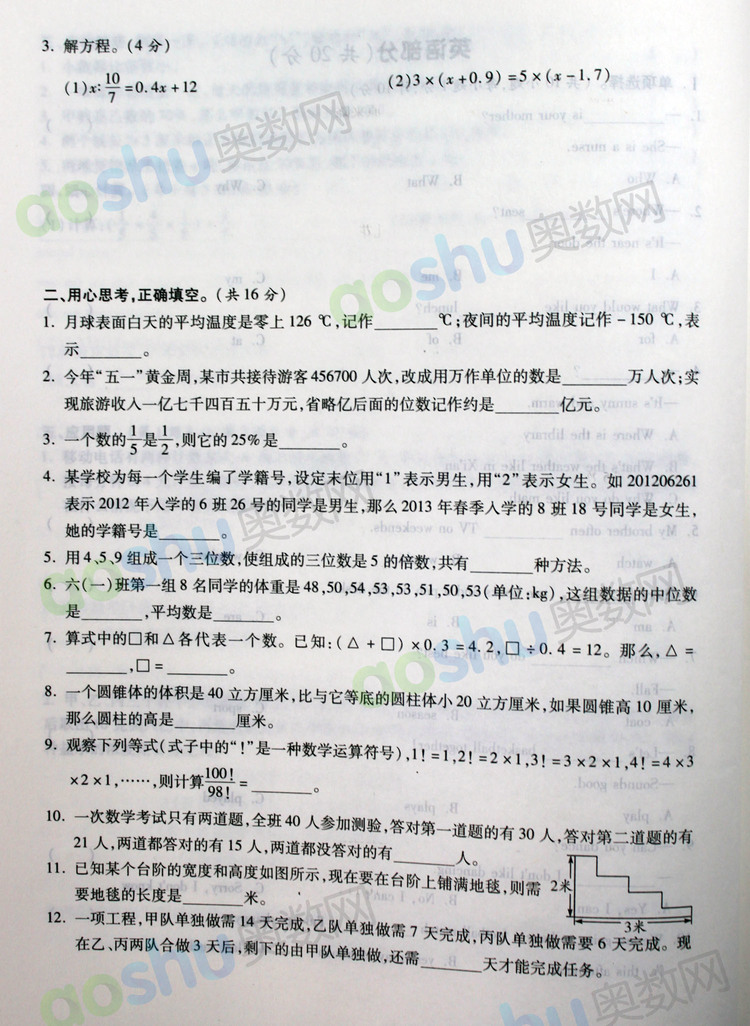 3. 解方程。(4 分)
(1)x:10/7=0.4x+12 (2)3×(x+0.9)=5×(x-1,7)
二、用心思考,正确填空。(共 16 分)
1. 月球表面白天的平均温度是零上 126 ℃,记作______℃;夜间的平均温度记作-150 ℃,表
示______。
2. 今年“五一”黄金周,某市共接待游客 456700 人次,改成用万作单位的数是______万人次;实
现旅游收入一亿七千四百五十万元,省略亿后面的位数记作约是______亿元。
3. 一个数的1/5是1/2,则它的 25%是______。
4. 某学校为每一个学生编了学籍号,设定末位用“1”表示男生,用“2”表示女生。如 201206261
表示 2012 年入学的 6 班 26 号的同学是男生,那么 2013 年春季入学的 8 班 18 号同学是女生,
她的学籍号是______。
5. 用 4,5,9 组成一个三位数,使组成的三位数是 5 的倍数,共有______种方法。
6. 六(一)班第一组 8 名同学的体重是 48,50,54,53,53,51,50,53(单位:kg),这组数据的中位数
是______,平均数是______。
7. 算式中的□和△各代表一个数。已知:(△+□)×0.3=4.2,□÷0.4=12。那么,△=
______,□=______。
8. 一个圆锥体的体积是 40 立方厘米,比与它等底的圆柱体小 20 立方厘米,如果圆锥高 10 厘米,
那么圆柱的高是______厘米。
9. 观察下列等式(式子中的“!”是一种数学运算符号),1!=1,2!=2×1,3!=3×2×1,4!=4×3
×2×1,……,则计算100!/98!=______。
10. 一次数学考试只有两道题,全班 40 人参加测验,答对第一道题的有 30 人,答对第二道题的有
21 人,两道都答对的有 15 人,两道都没答对的有______人。
11. 已知某个台阶的宽度和高度如图所示,现在要在台阶上铺满地毯,则需
要地毯的长度是______米。
2米
3米
12. 一项工程,甲队单独做需 14 天完成,乙队单独做需 7 天完成,丙队单独做需要 6 天完成。现
在乙、丙两队合做 3 天后,剩下的由甲队单独做,还需______天才能完成任务。
aoshu奥数网
aoshu奥数网
aoshu奥数网
aoshu奥数网
aoshu奥数网
aoshu奥数网